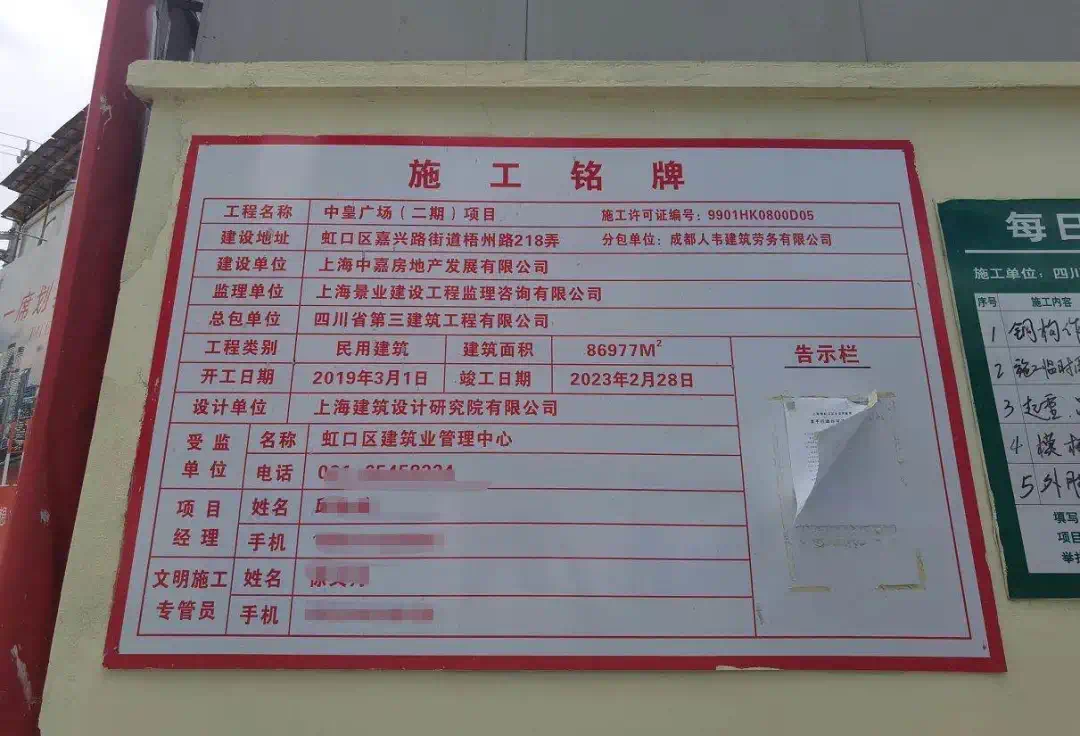 施工铭牌
工程名称 中皇广场（二期）项目 施工许可证编号：9901HK0800D05
建设地址 虹口区嘉兴路街道梧州路218弄 分包单位：成都人韦建筑劳务有限公司
建设单位 上海中嘉房地产发展有限公司
监理单位 上海景业建设工程监理咨询有限公司
总包单位 四川省第三建筑工程有限公司
工程类别 民用建筑 建筑面积 86977M²
开工日期 2019年3月1日 竣工日期 2023年2月28日
设计单位 上海建筑设计研究院有限公司
受监单位 名称 虹口区建筑业管理中心
电话
项目经理 姓名
手机
文明施工专管员 姓名
手机
告示栏
每日
施工单位：四川
序号 施工内容
1 钢构
2 施工临时
3 起重
4 模
5 外
填写
项目
一席